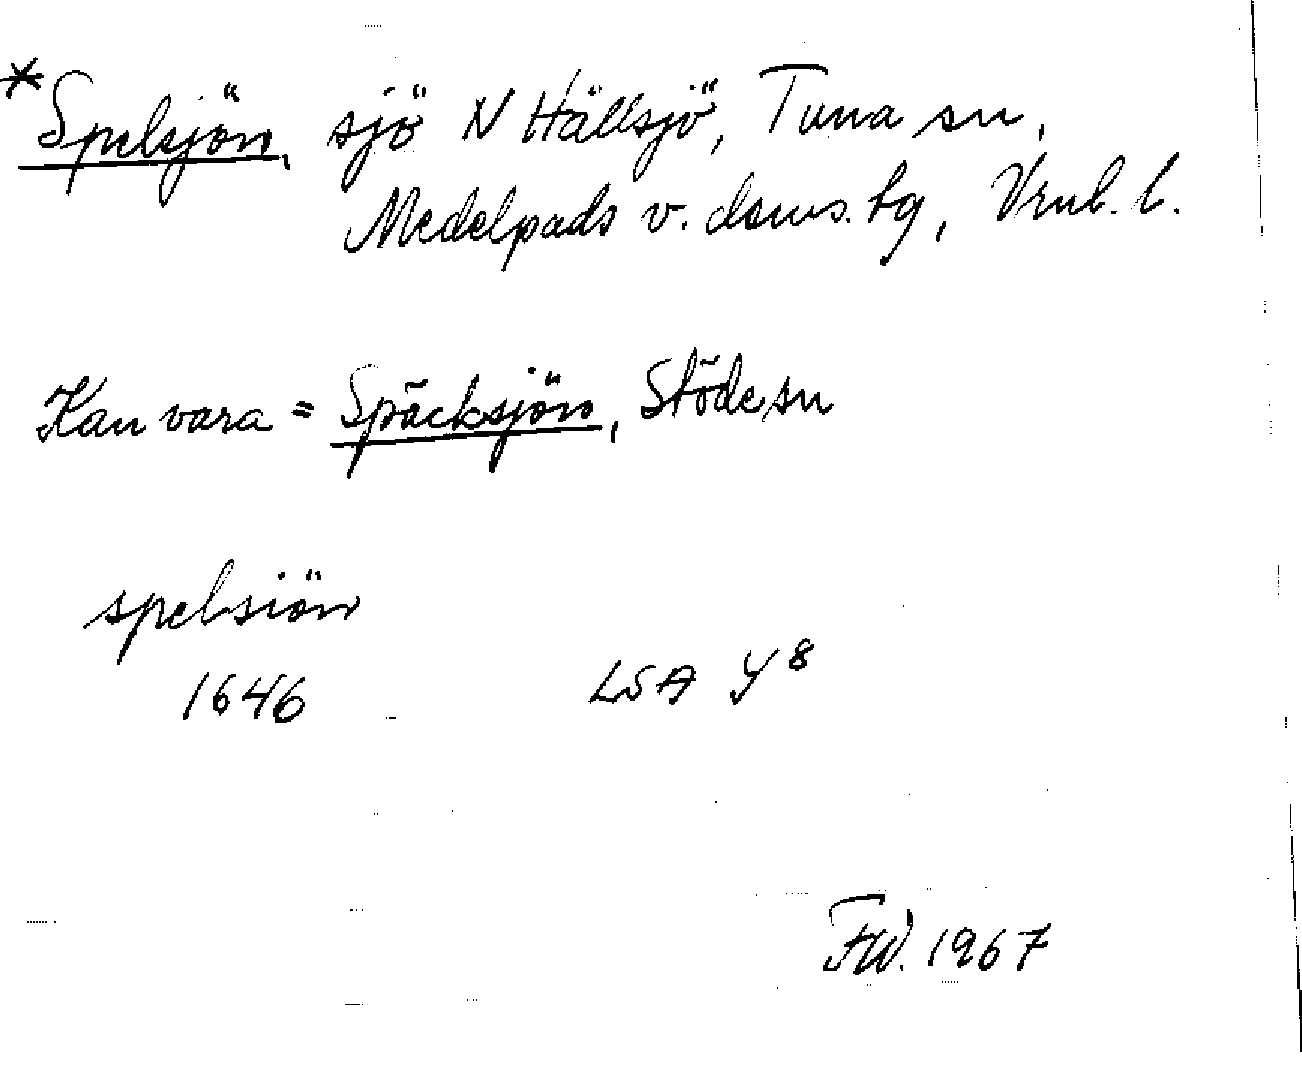 *Spelsjön, sjö N Hällsjö, Tuna sn,
Medelpads v. doms. tg, Vrnl. l.
Kan vara = Späcksjön, Stöde sn
spelsiön
1646 LSA Y8
FW. 1967